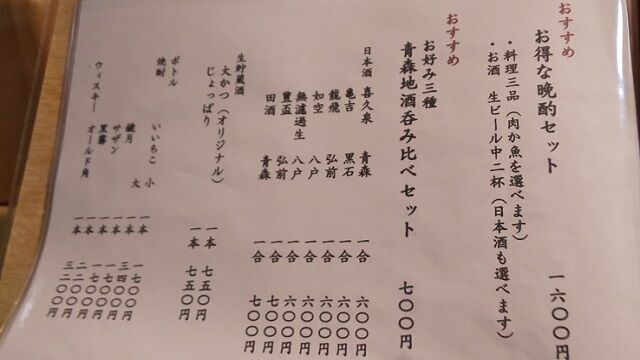 おすすめ
お得な晩酌セット 一六〇〇円
・料理三品（肉か魚を選べます）
・お酒 生ビール中二杯（日本酒も選べます）
おすすめ
お好み三種
青森地酒呑み比べセット 七〇〇円
日本酒 喜久泉 青森 一合 六〇〇円
亀吉 黒石 一合 六〇〇円
龍飛 弘前 一合 六〇〇円
如空 八戸 一合 六〇〇円
無濾過生 八戸 一合 六〇〇円
豊盃 弘前 一合 七〇〇円
田酒 青森 一合 七〇〇円
生貯蔵酒
大かつ（オリジナル） 一本 七五〇円
じょっぱり 一本 七五〇円
ボトル
焼酎 いいちこ 小 一本 一七〇〇円
大 一本 三四〇〇円
鏡月 一本 一七〇〇円
サザン 一本 一七〇〇円
黒霧 一本 二二〇〇円
ウィスキー オールド角 一本 三二〇〇円